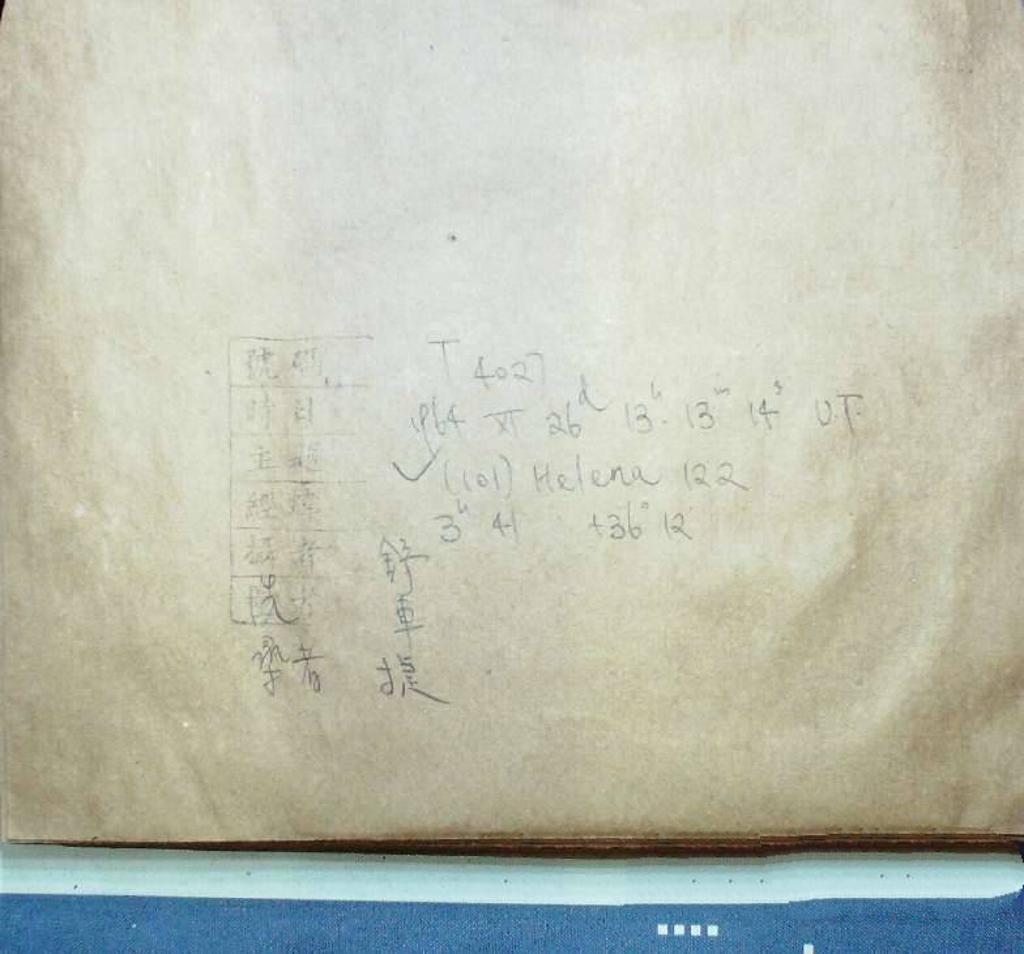 號碼 T 4027
時日 1964 XI 26ᵈ 13ʰ 13ᵐ 14ˢ U.T.
主題 ✓ (101) Helena 122
經緯 3ʰ 41 +36° 12'
攝者 舒
洗 車
者 捷